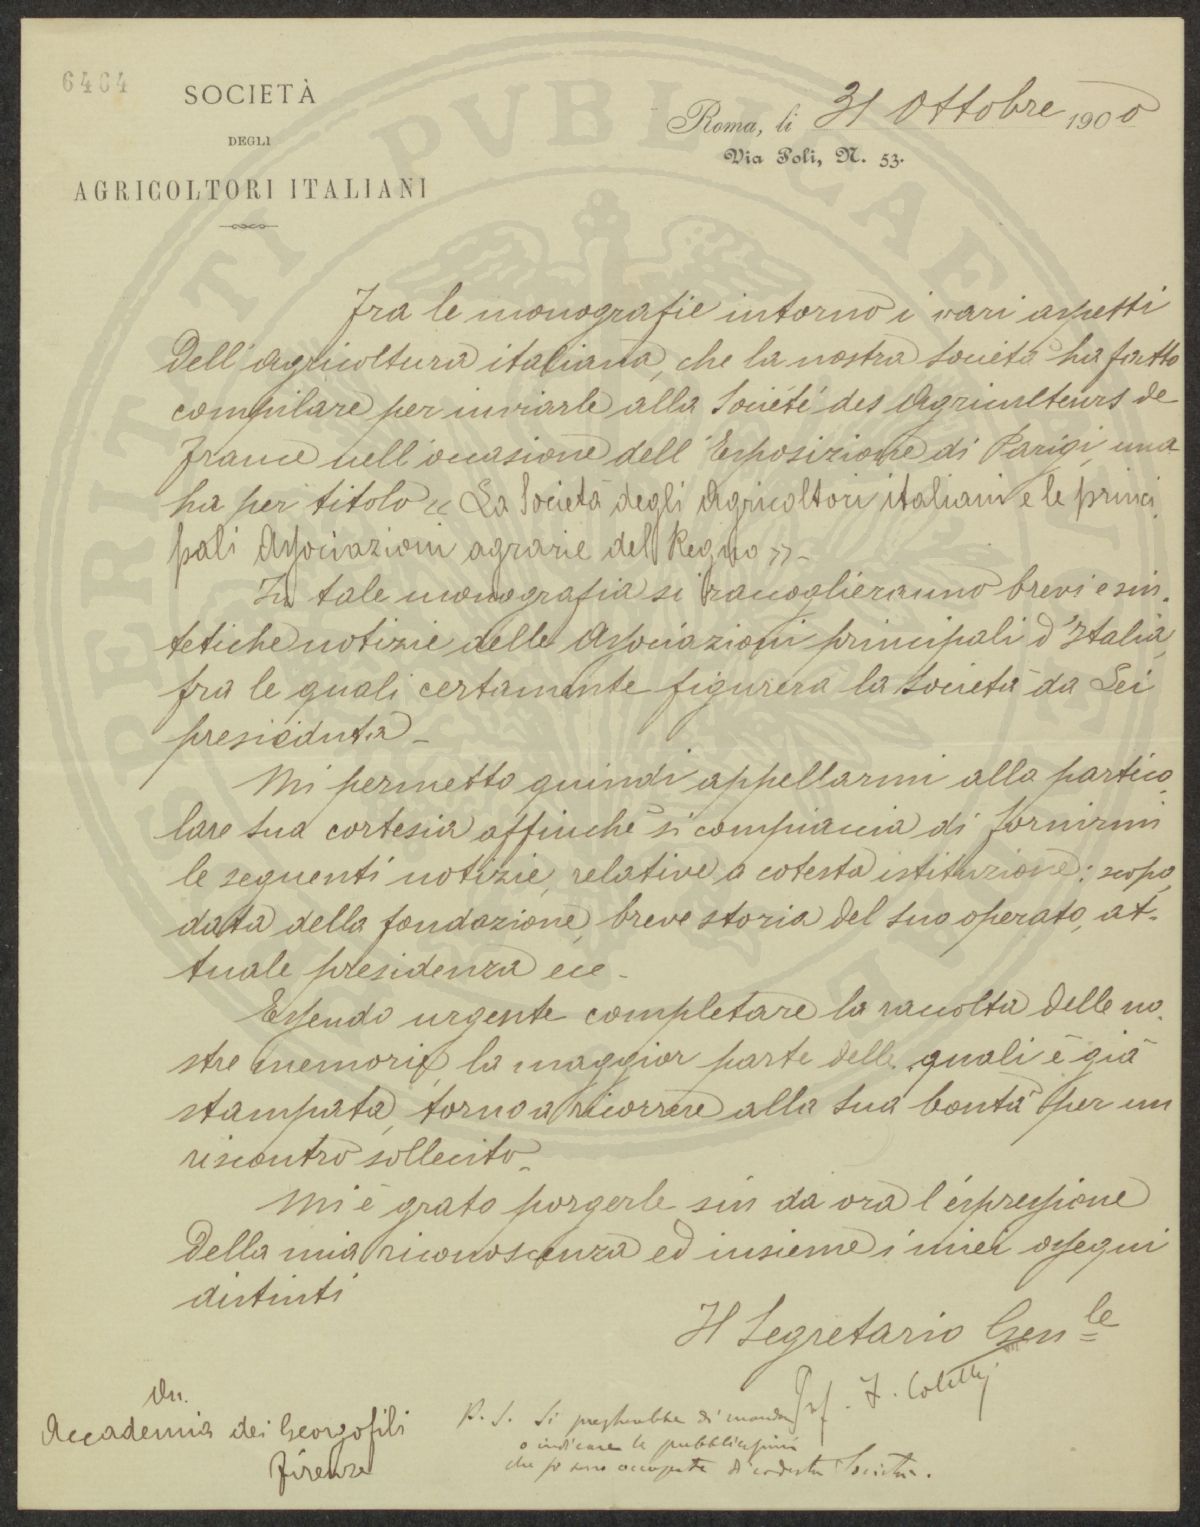 6464
SOCIETÀ
DEGLI
AGRICOLTORI ITALIANI
Roma, li 31 Ottobre 1900
Via Poli, N. 53.
Fra le monografie intorno i vari aspetti
dell'agricoltura italiana, che la nostra Società ha fatto
compilare per inviarle alla Société des Agriculteurs de
France nell'occasione dell'Esposizione di Parigi, una
ha per titolo « La Società degli Agricoltori italiani e le princi
pali Associazioni agrarie del Regno » -
In tale monografia si raccoglieranno brevi e sin-
tetiche notizie delle Associazioni principali d'Italia,
fra le quali certamente figurerà la Società da Lei
presieduta -
Mi permetto quindi appellarmi alla partico-
lare Sua cortesia affinchè si compiaccia di fornirmi
le seguenti notizie, relative a cotesta istituzione: scopo,
data della fondazione, breve storia del suo operato, at-
tuale presidenza ecc -
Essendo urgente completare la raccolta delle no-
stre memorie, la maggior parte delle quali è già
stampata, torno a ricorrere alla Sua bontà per un
riscontro sollecito -
Mi è grato porgerle sin da ora l'espressione
della mia riconoscenza ed insieme i miei ossequi
distinti
Il Segretario Gen.le
Prof. F. Coletti
On.
Accademia dei Georgofili
Firenze
P. S. Si pregherebbe di mandare
o indicare le pubblicazioni
che si sono occupate di codesta Società.
PUBLICAE